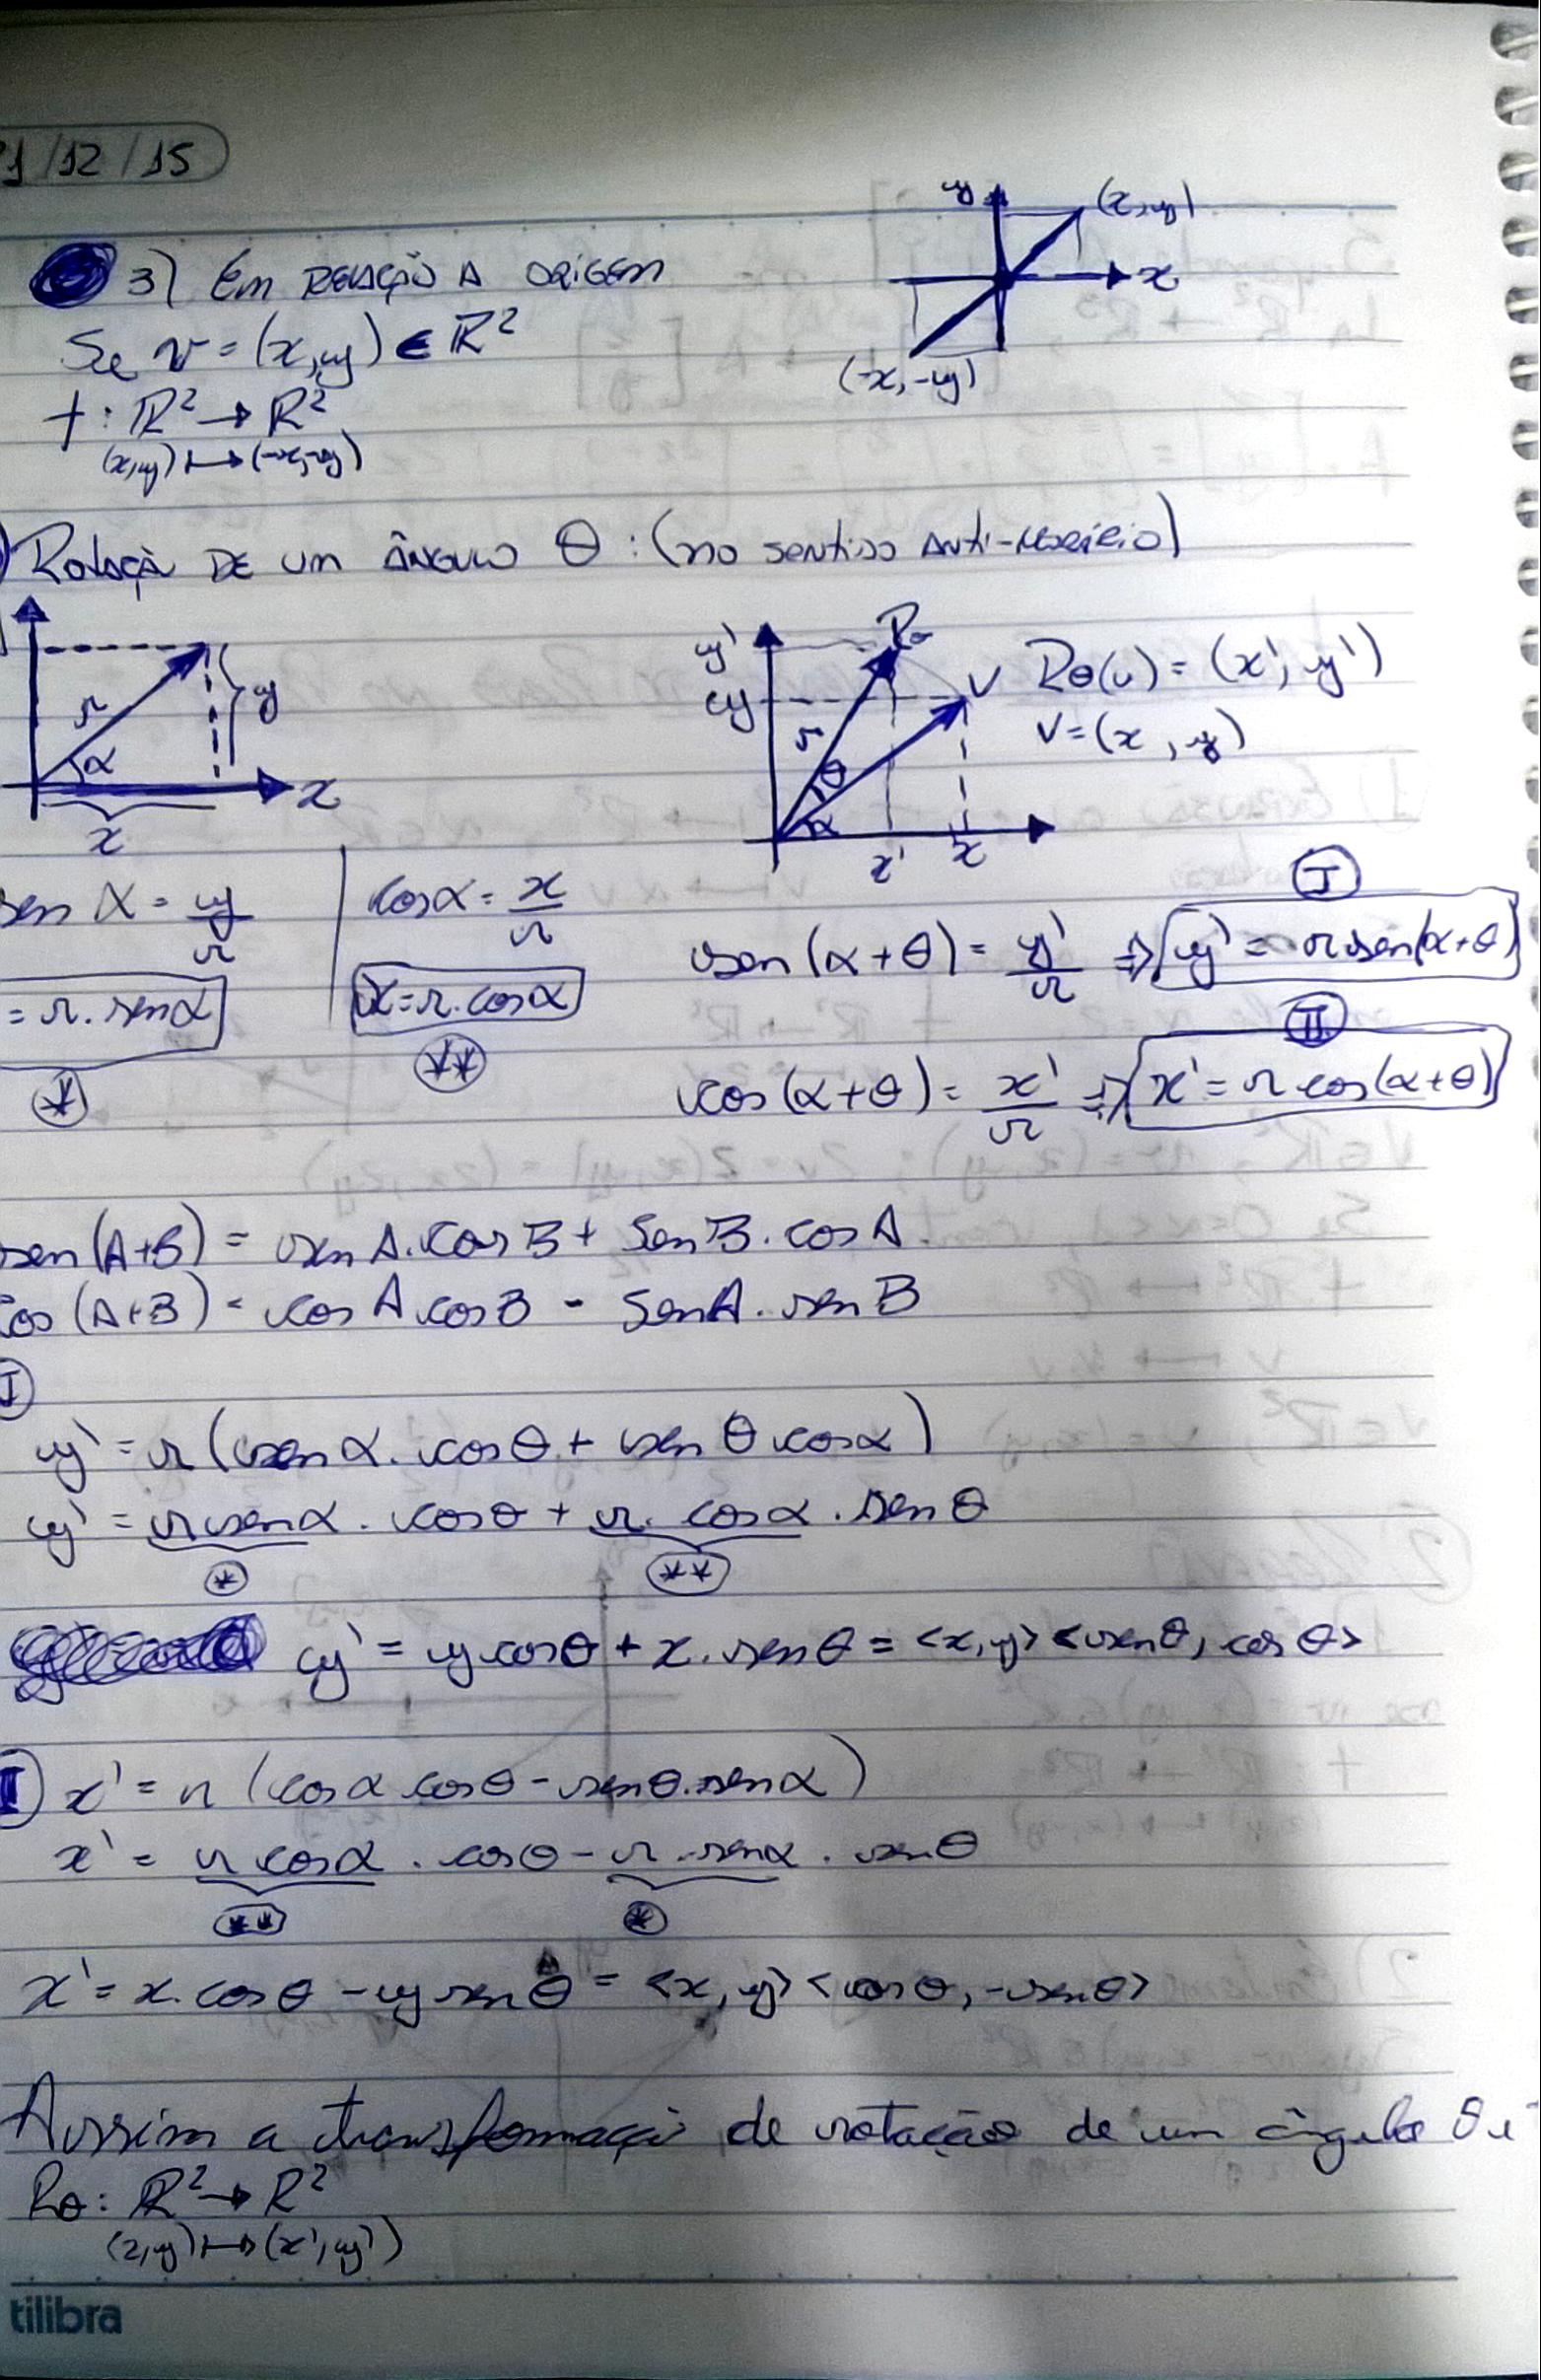 1/12/15
y (x,y)
x
(-x,-y)
3) Em RELAÇÃO A ORIGEM
Se v = (x,y) ∈ ℝ²
f: ℝ² → ℝ²
(x,y) ↦ (-x,-y)
Rotação DE um ÂNGULO θ: (no sentido Anti-Horário)
r α y x x
y' y r θ α Rθ V x' x
Rθ(v) = (x', y')
V = (x, y)
sen α = y/r
cos α = x/r
= r. sen α
*
x = r. cos α
**
I
sen (α+θ) = y'/r ⇒ y' = r sen(α+θ)
II
cos (α+θ) = x'/r ⇒ x' = r cos(α+θ)
sen (A+B) = sen A. cos B + Sen B. cos A
cos (A+B) = cos A cos B - Sen A. sen B
I
y' = r (sen α. cos θ + sen θ cos α)
y' = r sen α. cos θ + r. cos α. sen θ
* **
y' = y cos θ + x. sen θ = <x,y> <sen θ, cos θ>
I x' = r (cos α cos θ - sen θ. sen α)
x' = r cos α. cos θ - r. sen α. sen θ
** *
x' = x. cos θ - y sen θ = <x,y> <cos θ, -sen θ>
Assim a transformação de rotação de um ângulo θ é
Rθ: ℝ² → ℝ²
(x,y) ↦ (x',y')
tilibra